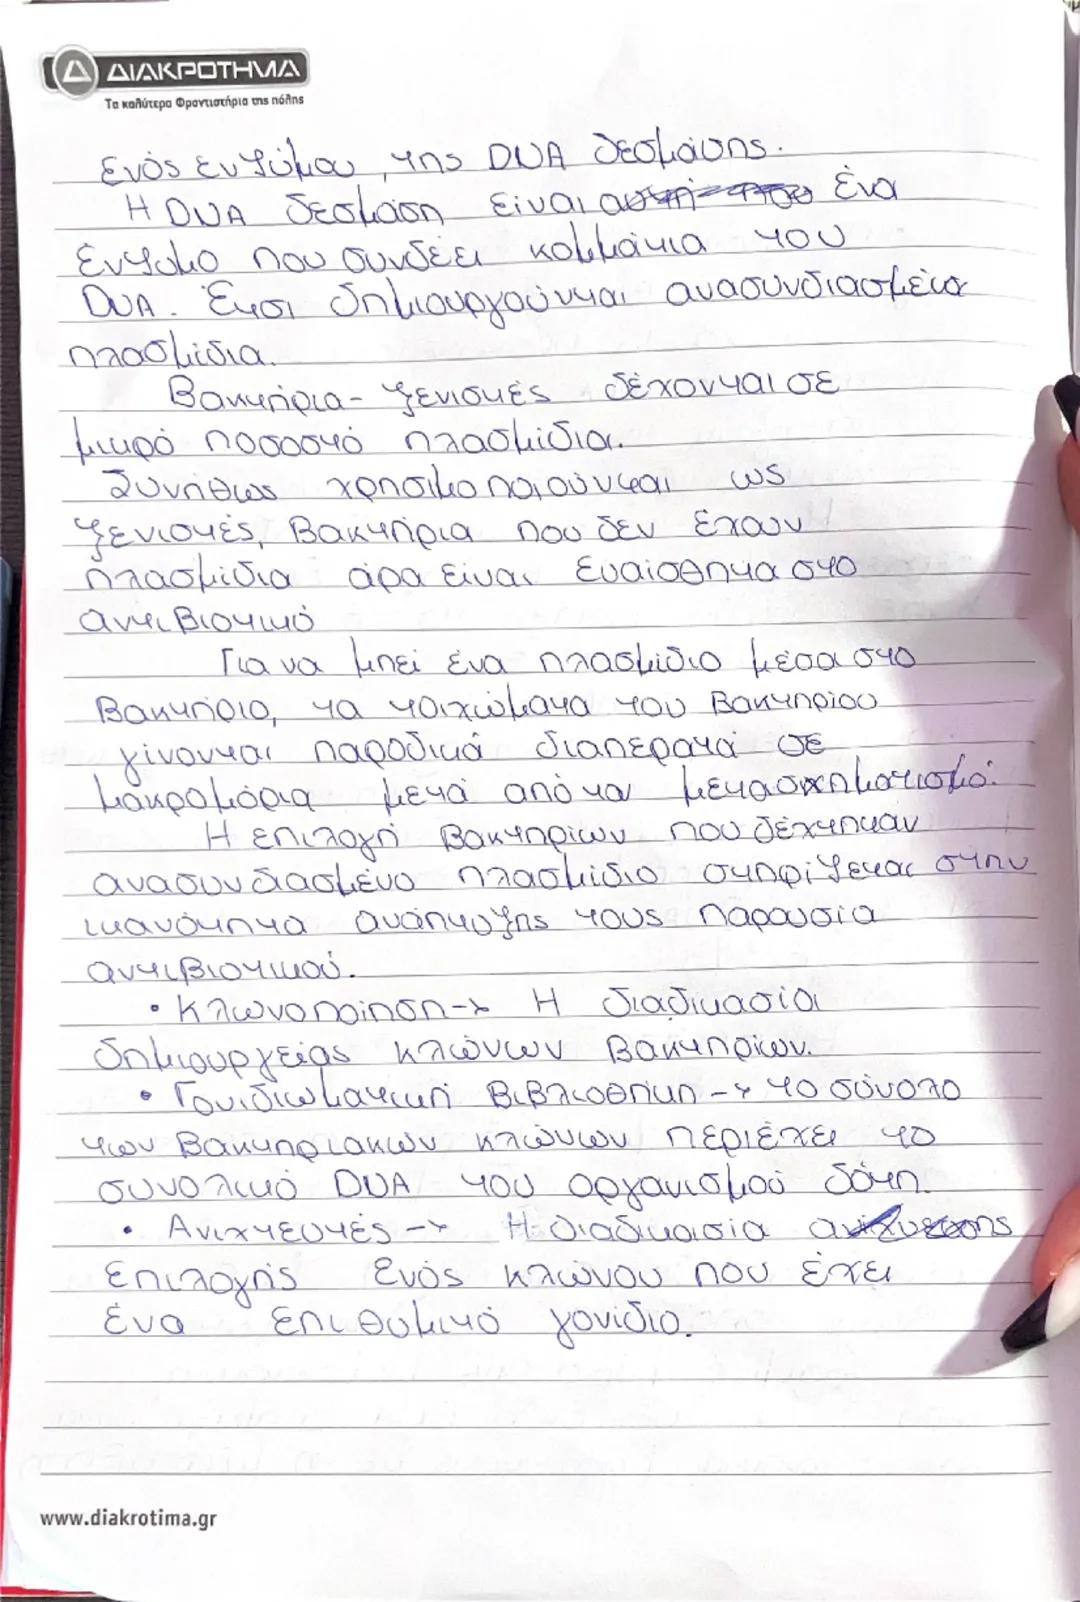 ΔΙΑΚΡΟΤΗΜΑ
Τα καλύτερα Φροντιστήρια της πόλης
ενός ενζύμου, της DNA δεσμάσης.
Η DNA δεσμάση είναι ένα
ένζυμο που συνδέει κομμάτια του
DNA. Έτσι δημιουργούνται ανασυνδιασμένα
πλασμίδια.
Βακτήρια-ξενιστές δέχονται σε
μικρό ποσοστό πλασμίδια.
Συνήθως χρησιμοποιούνται ως
ξενιστές, βακτήρια που δεν έχουν
πλασμίδια άρα είναι ευαίσθητα στο
αντιβιοτικό
Για να μπει ένα πλασμίδιο μέσα στο
βακτήριο, τα τοιχώματα του βακτηρίου
γίνονται παροδικά διαπερατά σε
μακρομόρια μετά από τα μετασχηματισμό.
Η επιλογή βακτηρίων που δέχτηκαν
ανασυνδιασμένο πλασμίδιο στηρίζεται στην
ικανότητα ανάπτυξης τους παρουσία
αντιβιοτικού.
• Κλωνοποίηση→ Η διαδικασία
δημιουργείας κλώνων βακτηρίων.
• Γονιδιωματική Βιβλιοθήκη → το σύνολο
των βακτηριακών κλώνων περιέχει το
συνολικό DNA του οργανισμού δότη.
• Ανιχτευτές → Η διαδικασία
επιλογής ενός κλώνου που έχει
ένα επιθυμιτό γονίδιο.
www.diakrotima.gr